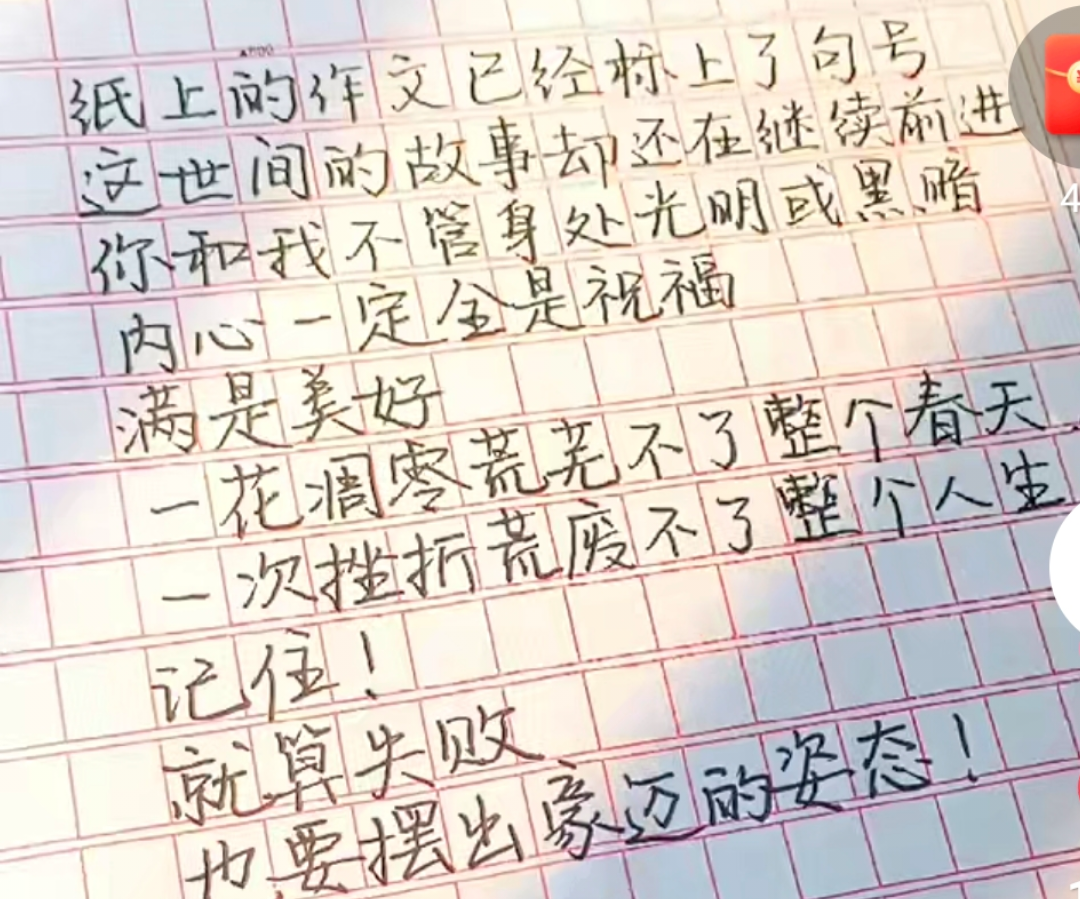 纸上的作文已经标上了句号
这世间的故事却还在继续前进
你和我不管身处光明或黑暗
内心一定全是祝福
满是美好
一花凋零荒芜不了整个春天
一次挫折荒废不了整个人生
记住！
就算失败
也要摆出豪迈的姿态！